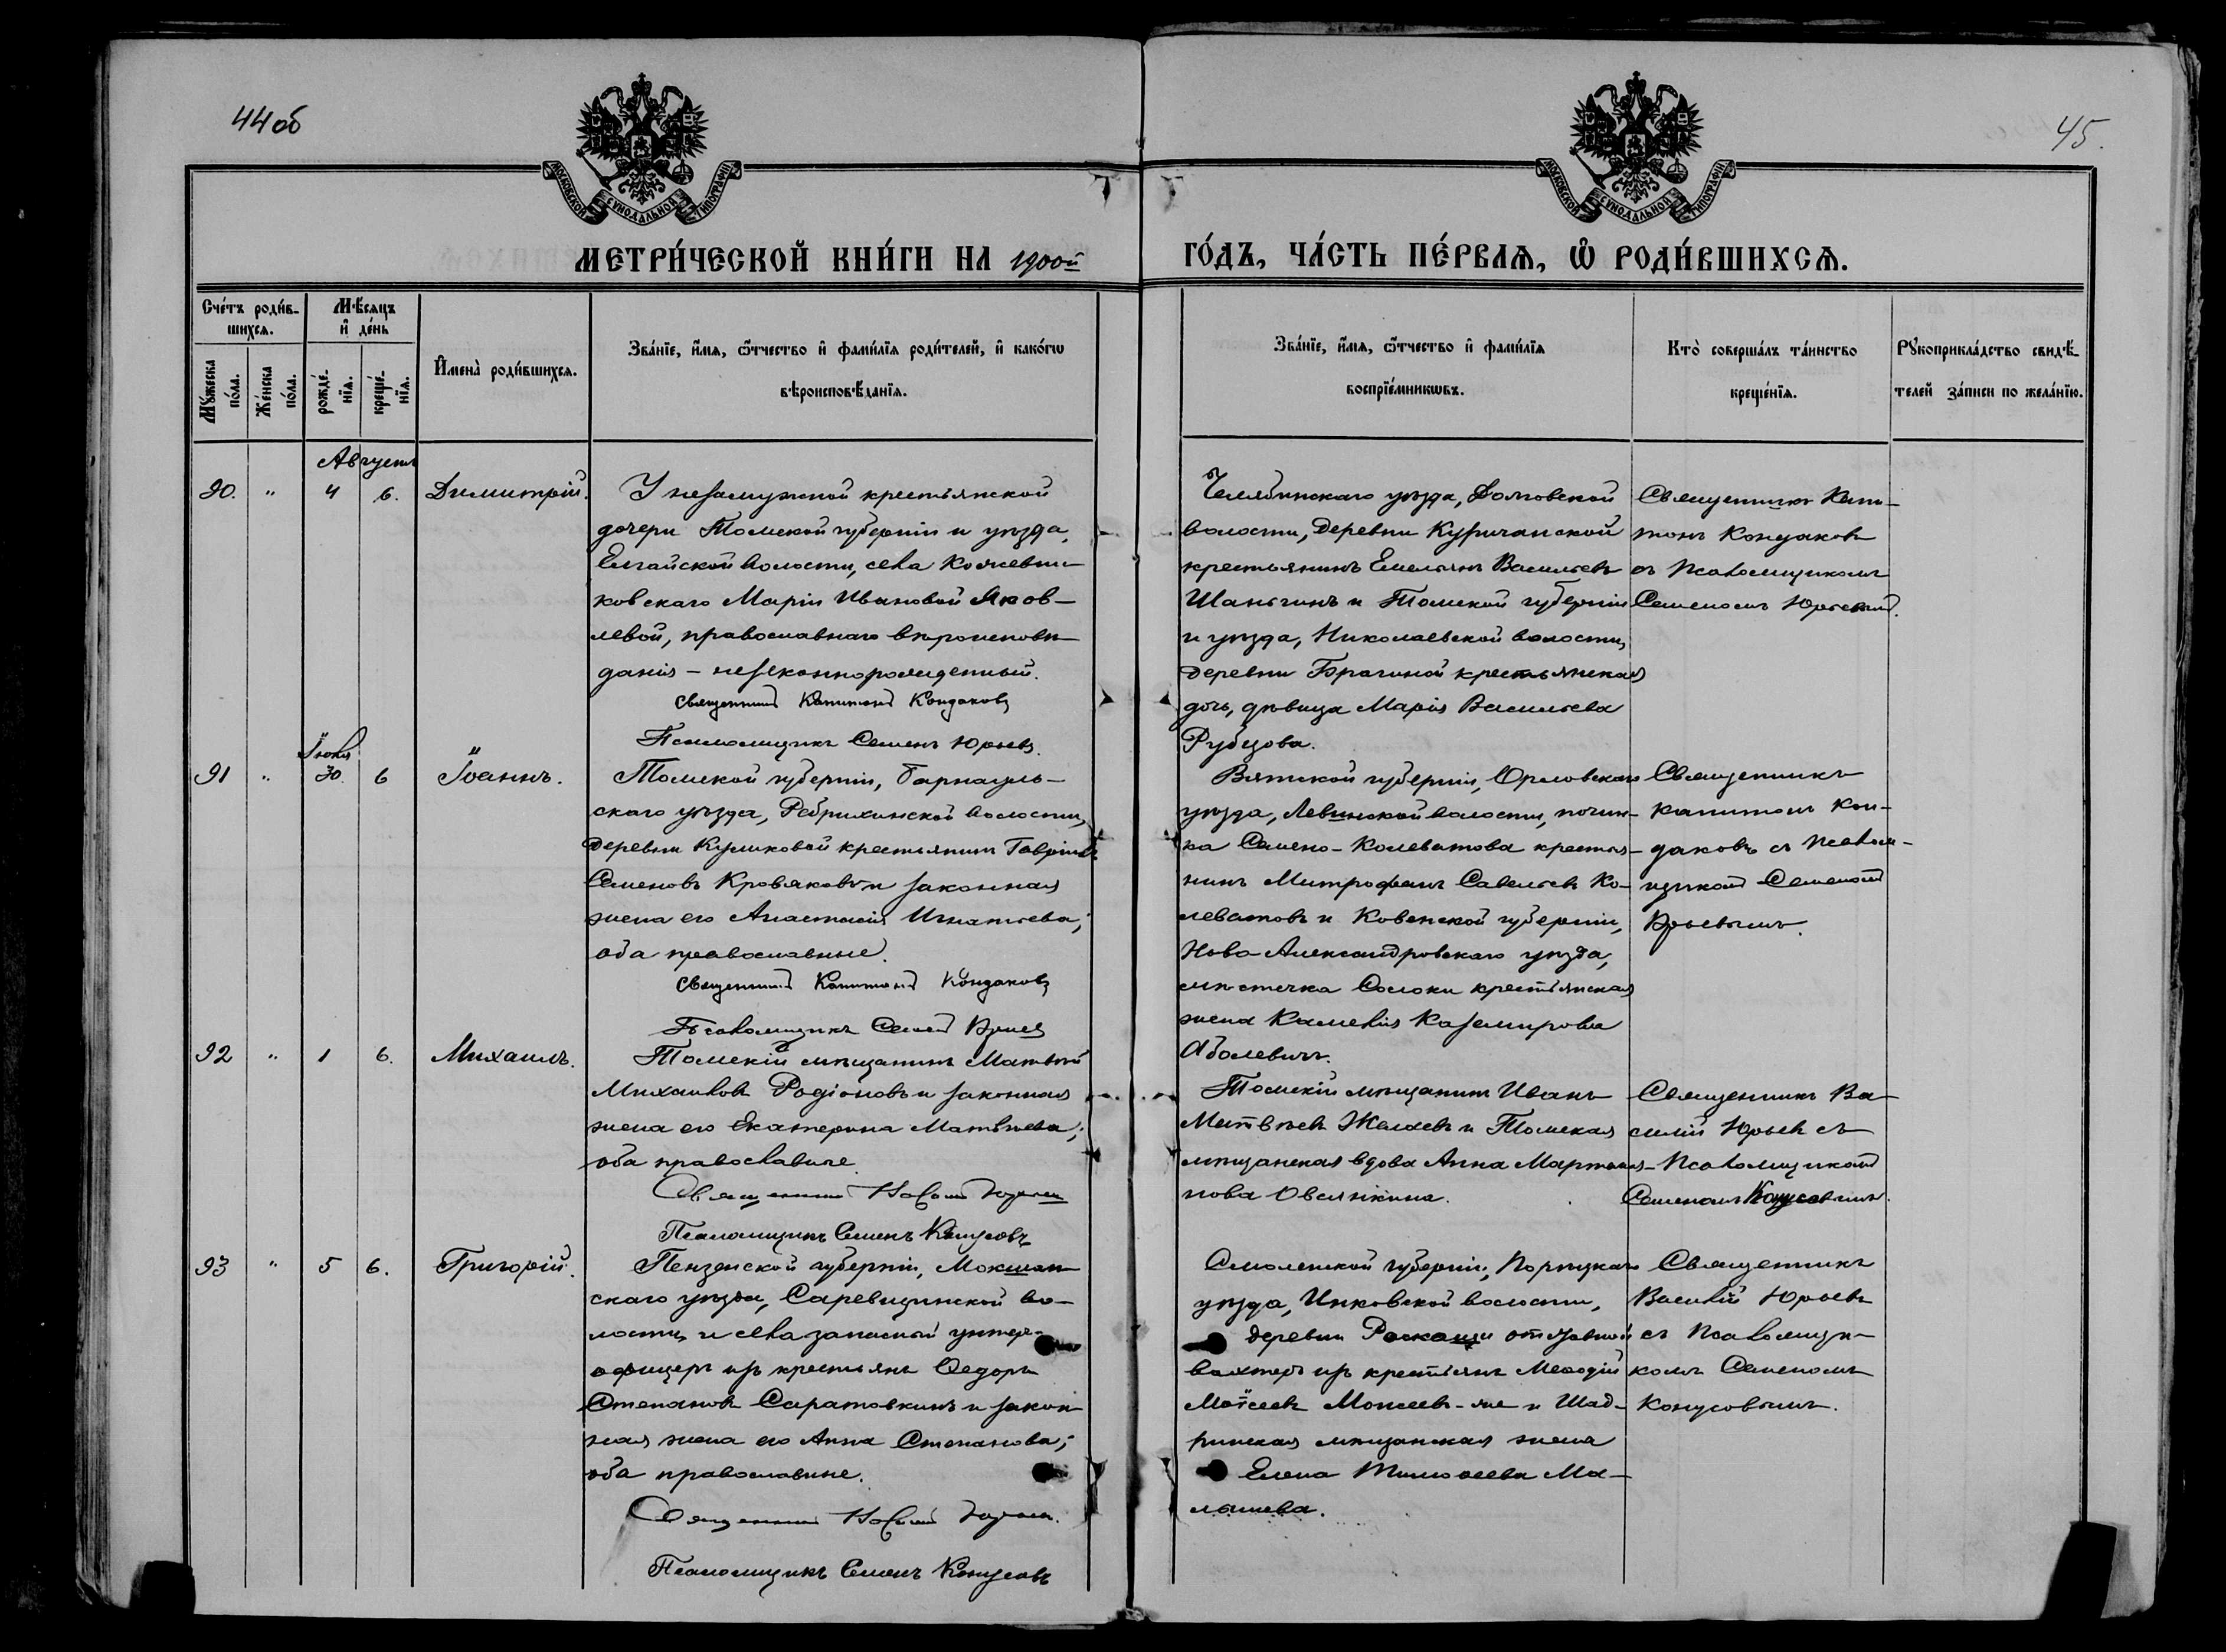 44об
45.
МОСКОВСКОЙ СѴНОДАЛЬНОЙ ТИПОГРАФІИ
МОСКОВСКОЙ СѴНОДАЛЬНОЙ ТИПОГРАФІИ
МЕТРИ́ЧЕСКОЙ КНИ́ГИ НА 1900й
ГО́ДЪ, ЧА́СТЬ ПЕ́РВАѦ, Ѡ҆ РОДИ́ВШИХСѦ.
Сче́тъ роди́в-
шихсѧ.
Мꙋ́жеска по́ла.
Же́нска по́ла.
Мѣ́сѧцъ
и҆ де́нь
рожде́-
нїѧ.
креще́-
нїѧ.
И҆мена̀ роди́вшихсѧ.
Зва́нїе, и҆́мѧ, ѻ҆́тчество и҆ фамѝлїѧ роди́телей, и҆ како́гѡ
вѣроисповѣ́данїѧ.
Зва́нїе, и҆́мѧ, ѻ҆́тчество и҆ фами́лїѧ
воспрїе́мникѡвъ.
Кто̀ соверша́лъ та́инство
креще́нїѧ.
Рꙋкоприкла́дство свидѣ́-
телей за́писи по жела́нїю.
Августъ
90. " 4 6. Димитрій.
У незамужной крестьянской
дочери Томской губерніи и уѣзда,
Елгайской волости, села Кожевни-
ковскаго Маріи Ивановой Яков-
левой, православнаго вѣроисповѣ-
данія – незаконнорожденный.
Священникъ Капитонъ Кондаковъ
Псаломщикъ Семенъ Юрьевъ.
Челябинскаго уѣзда, Долговской
волости, деревни Куричанской
крестьянинъ Емельянъ Васильевъ
Шаньгинъ и Томской губерніи
и уѣзда, Николаевской волости,
деревни Брагиной крестьянская
дочь, дѣвица Марія Васильева
Рубцова.
Священникъ Капи-
тонъ Кондаковъ
съ Псаломщикомъ
Семеномъ Юрьевымъ.
Іюля
91 " 30. 6 Іоаннъ.
Томской губерніи, Барнауль-
скаго уѣзда, Ребрихинской волости,
деревни Куликовой крестьянинъ Гавріилъ
Семеновъ Кровяковъ и законная
жена его Анастасія Игнатьева;
оба православные.
Священникъ Капитонъ Кондаковъ
Псаломщикъ Семенъ Юрьевъ
Вятской губерніи, Орловскаго
уѣзда, Левинской волости, почин-
ка Семено-Колеватова крестья-
нинъ Митрофанъ Савельевъ Ко-
леватовъ и Ковенской губерніи,
Ново-Александровскаго уѣзда,
мѣстечка Солоки крестьянская
жена Камелія Каземирова
Аболевичъ.
Священникъ
Капитонъ Кон-
даковъ съ Псалом-
щикомъ Семеномъ
Юрьевымъ.
92 " 1 6. Михаилъ.
Томскій мѣщанинъ Матвѣй
Михаиловъ Родіоновъ и законная
жена его Екатерина Матвѣева;
оба православные
Священникъ Василій Юрьевъ
Псаломщикъ Семенъ Конусовъ
Томскій мѣщанинъ Иванъ
Матвѣевъ Желаевъ и Томская
мѣщанская вдова Анна Мартемья-
нова Овсянкина.
Священникъ Ва-
силій Юрьевъ съ
Псаломщикомъ
Семеномъ Конусовымъ.
93 " 5 6. Григорій.
Пензенской губерніи, Мокшан-
скаго уѣзда, Царевщинской во-
лости и села запасный унтеръ-
офицеръ изъ крестьянъ Ѳедоръ
Степановъ Саратовкинъ и закон-
ная жена его Анна Степанова;
оба православные.
Священникъ Василій Юрьевъ.
Псаломщикъ Семенъ Конусовъ
Смоленской губерніи, Порѣцкаго
уѣзда, Инковской волости,
деревни отставной
вахтеръ изъ крестьянъ Меѳодій
Моѵсеевъ Моисеевъ-же и Шад-
ринская мѣщанская жена
Елена Тимоѳеева Ма-
лышева.
Священникъ
Василій Юрьевъ
съ Псаломщи-
комъ Семеномъ
Конусовымъ.